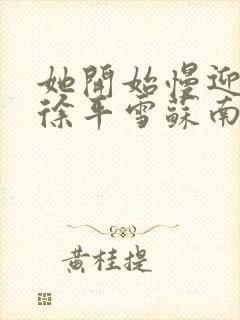 她開始慢迎
徐平雪蘇南
黃桂提